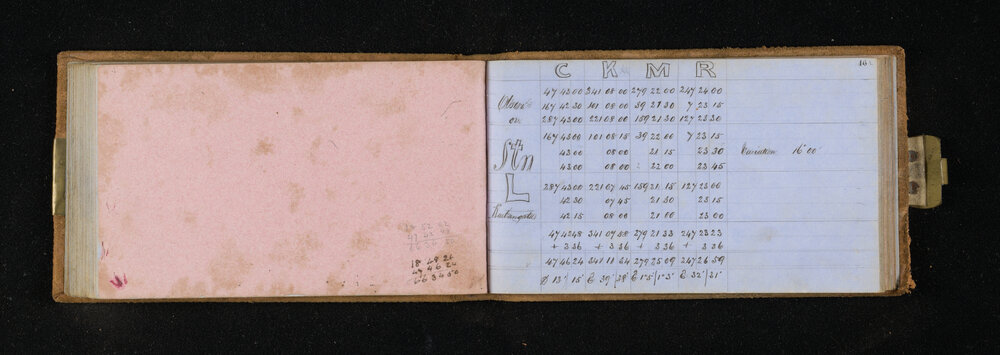 18 49 21
47 46 24
66 34 50
46
C K M R
47 43 00 341 08 00 279 22 00 247 24 00
167 42 30 101 08 00 39 21 30 7 23 15
287 43 00 221 08 00 159 21 30 127 23 30
on
167 43 00 101 08 15 39 22 00 7 23 15
43 00 08 00 21 15 23 30
43 00 08 00 22 00 23 45
Variation 16 00
Stn
L
287 43 00 221 07 45 159 21 15 127 23 00
42 30 07 45 21 30 23 15
42 15 08 00 21 00 23 00
47 42 48 341 07 58 279 21 33 247 23 23
+ 3 36 + 3 36 + 3 36 + 3 36
47 46 24 341 11 34 279 25 09 247 26 59